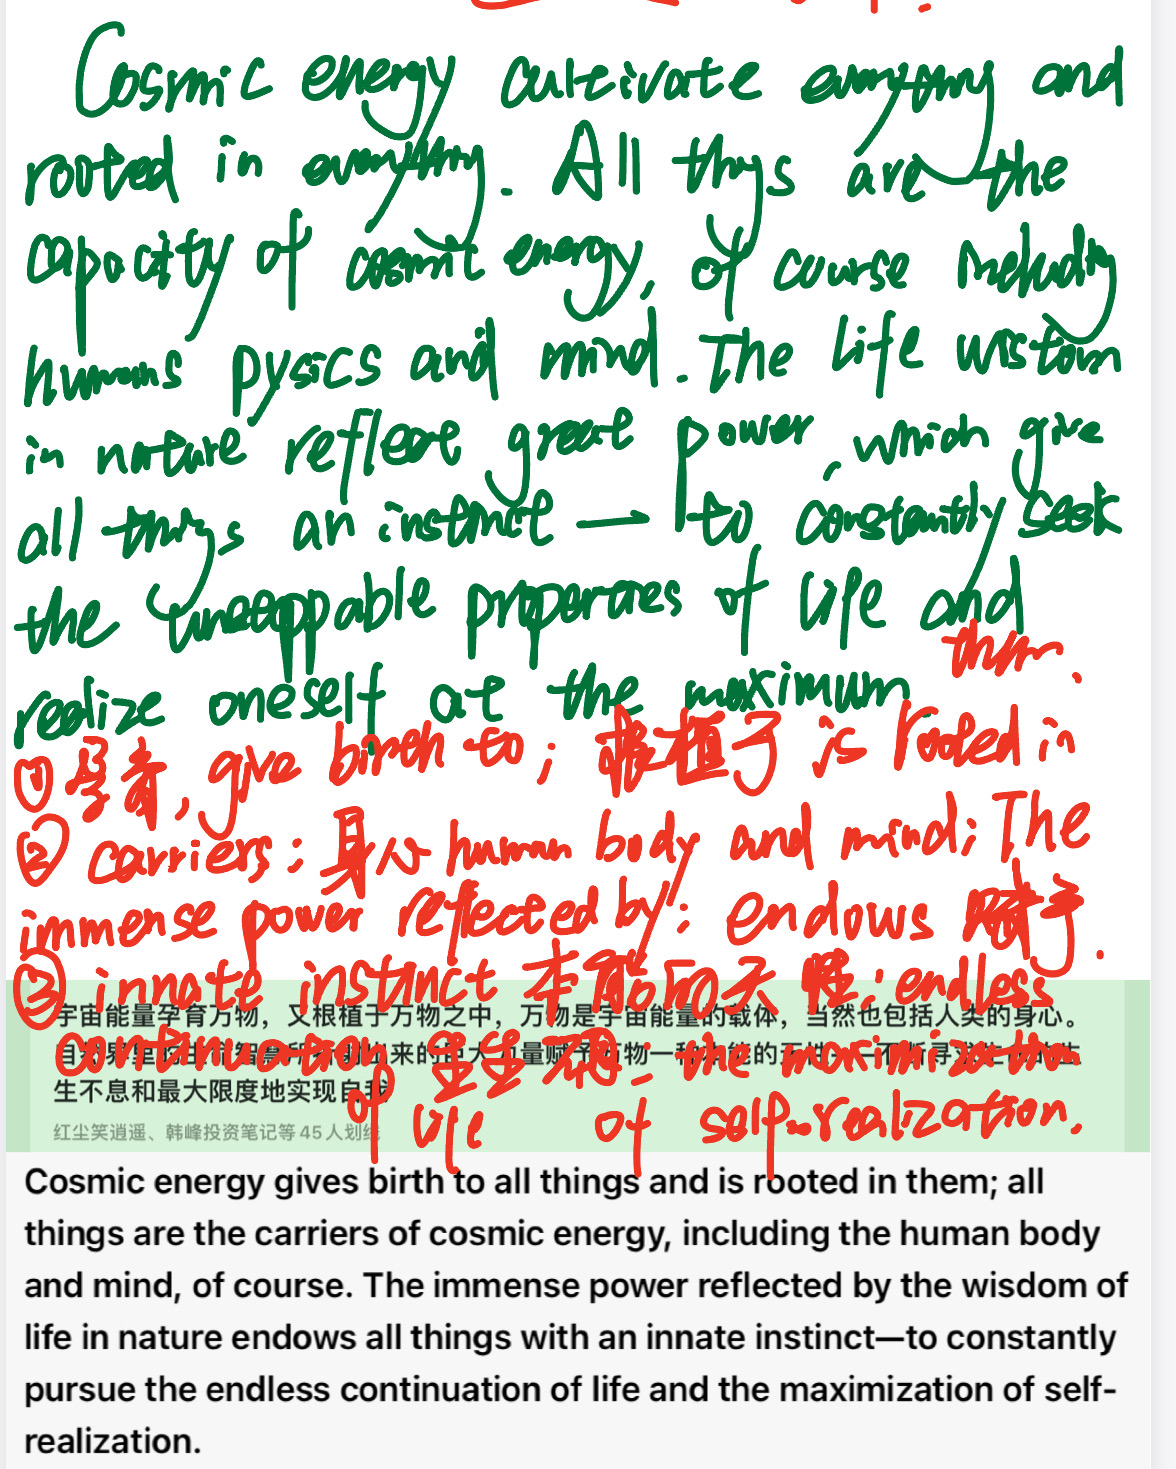 Cosmic energy cultivate everything and
rooted in everything. All things are the
capacity of cosmic energy, of course including
humans pysics and mind. The life wistom
in nature reflect great power, which give
all things an instinct — to constantly seek
the properties of life and
realize oneself at the maximum
them.
① 孕育, give birth to; 根植于 is rooted in
② carriers: 身心 human body and mind; The
immense power reflected by: endows 赋予.
③ innate instinct 本能的天性: endless
continuation of life 生生不息: the maximization
of self-realization.
宇宙能量孕育万物，又根植于万物之中，万物是宇宙能量的载体，当然也包括人类的身心。
生不息和最大限度地实现自我
红尘笑逍遥、韩峰投资笔记等45人划线
Cosmic energy gives birth to all things and is rooted in them; all
things are the carriers of cosmic energy, including the human body
and mind, of course. The immense power reflected by the wisdom of
life in nature endows all things with an innate instinct—to constantly
pursue the endless continuation of life and the maximization of self-
realization.